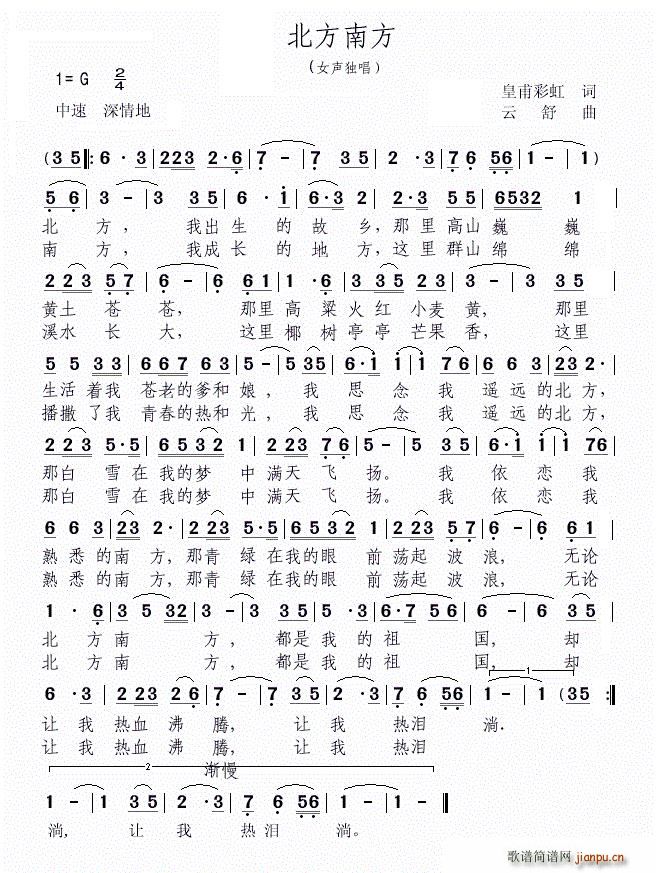 北方南方
(女声独唱)
1=G 2/4
中速 深情地
皇甫彩虹 词
云舒 曲
(3 5‖: 6 · 3 | 223 2·6 | 7 - | 7 35 | 2 · 3 | 76 56 | 1 - | 1 )
5 6 | 3 - | 3 35 | 6 · i | 6·3 | 2·3 55 | 6532 1 |
北 方， 我出生 的 故 乡，那 里 高山 巍 巍
南 方， 我成长 的 地 方，这 里 群山 绵 绵
223 57 | 6 - | 6 61 | 1 · 6 | 3 35 6 3 | 3 - | 3 35 |
黄土 苍 苍， 那里 高 粱 火 红 小麦 黄， 那里
溪水 长 大， 这里 椰 树 亭 亭 芒果 香，这里
5 5 33 | 667 63 | 5 - | 535 | 6·i | i 76 | 6 6 3 | 23 2· |
生活 着我 苍老的爹和 娘， 我 思 念 我 遥 远 的 北 方，
播撒 了我 青春的热和 光， 我 思 念 我 遥 远 的 北 方，
223 5·5 | 6532 | 1 223 76 | 5 - | 5 · 5 | 6·i | i 76 |
那白 雪 在 我的 梦 中 满天 飞 扬。 我 依 恋 我
那白 雪 在 我的 梦 中 满天 飞 扬。 我 依 恋 我
6 6 3 | 23 2· | 223 5·5 | 6532 | 1 223 57 | 6 - | 6 61 |
熟 悉 的 南 方，那青 绿 在我的眼 前 荡起 波 浪， 无论
熟 悉 的 南 方，那青 绿 在我的眼 前 荡起 波 浪， 无论
1 · 6 | 35 32 | 2 - | 2· 3 | 5 · 3 | 6·7 56 | 3 - | 3 35 |
北 方 南 方， 都是 我 的 祖 国， 却
北 方 南 方， 都是 我 的 祖 国， 却
1
6 · 3 | 223 26 | 7 - | 7 35 | 2 · 3 | 7 6 56 | 1 - | 1 (35 :‖
让 我 热血 沸 腾， 让 我 热泪 淌.
让 我 热血 沸 腾， 让 我 热泪
2 渐慢
1 - | 1 35 | 2 · 3 | 7 6 | 56 | 1 - | 1 - ‖
淌， 让 我 热泪 淌。
歌谱简谱网 jianpu.cn